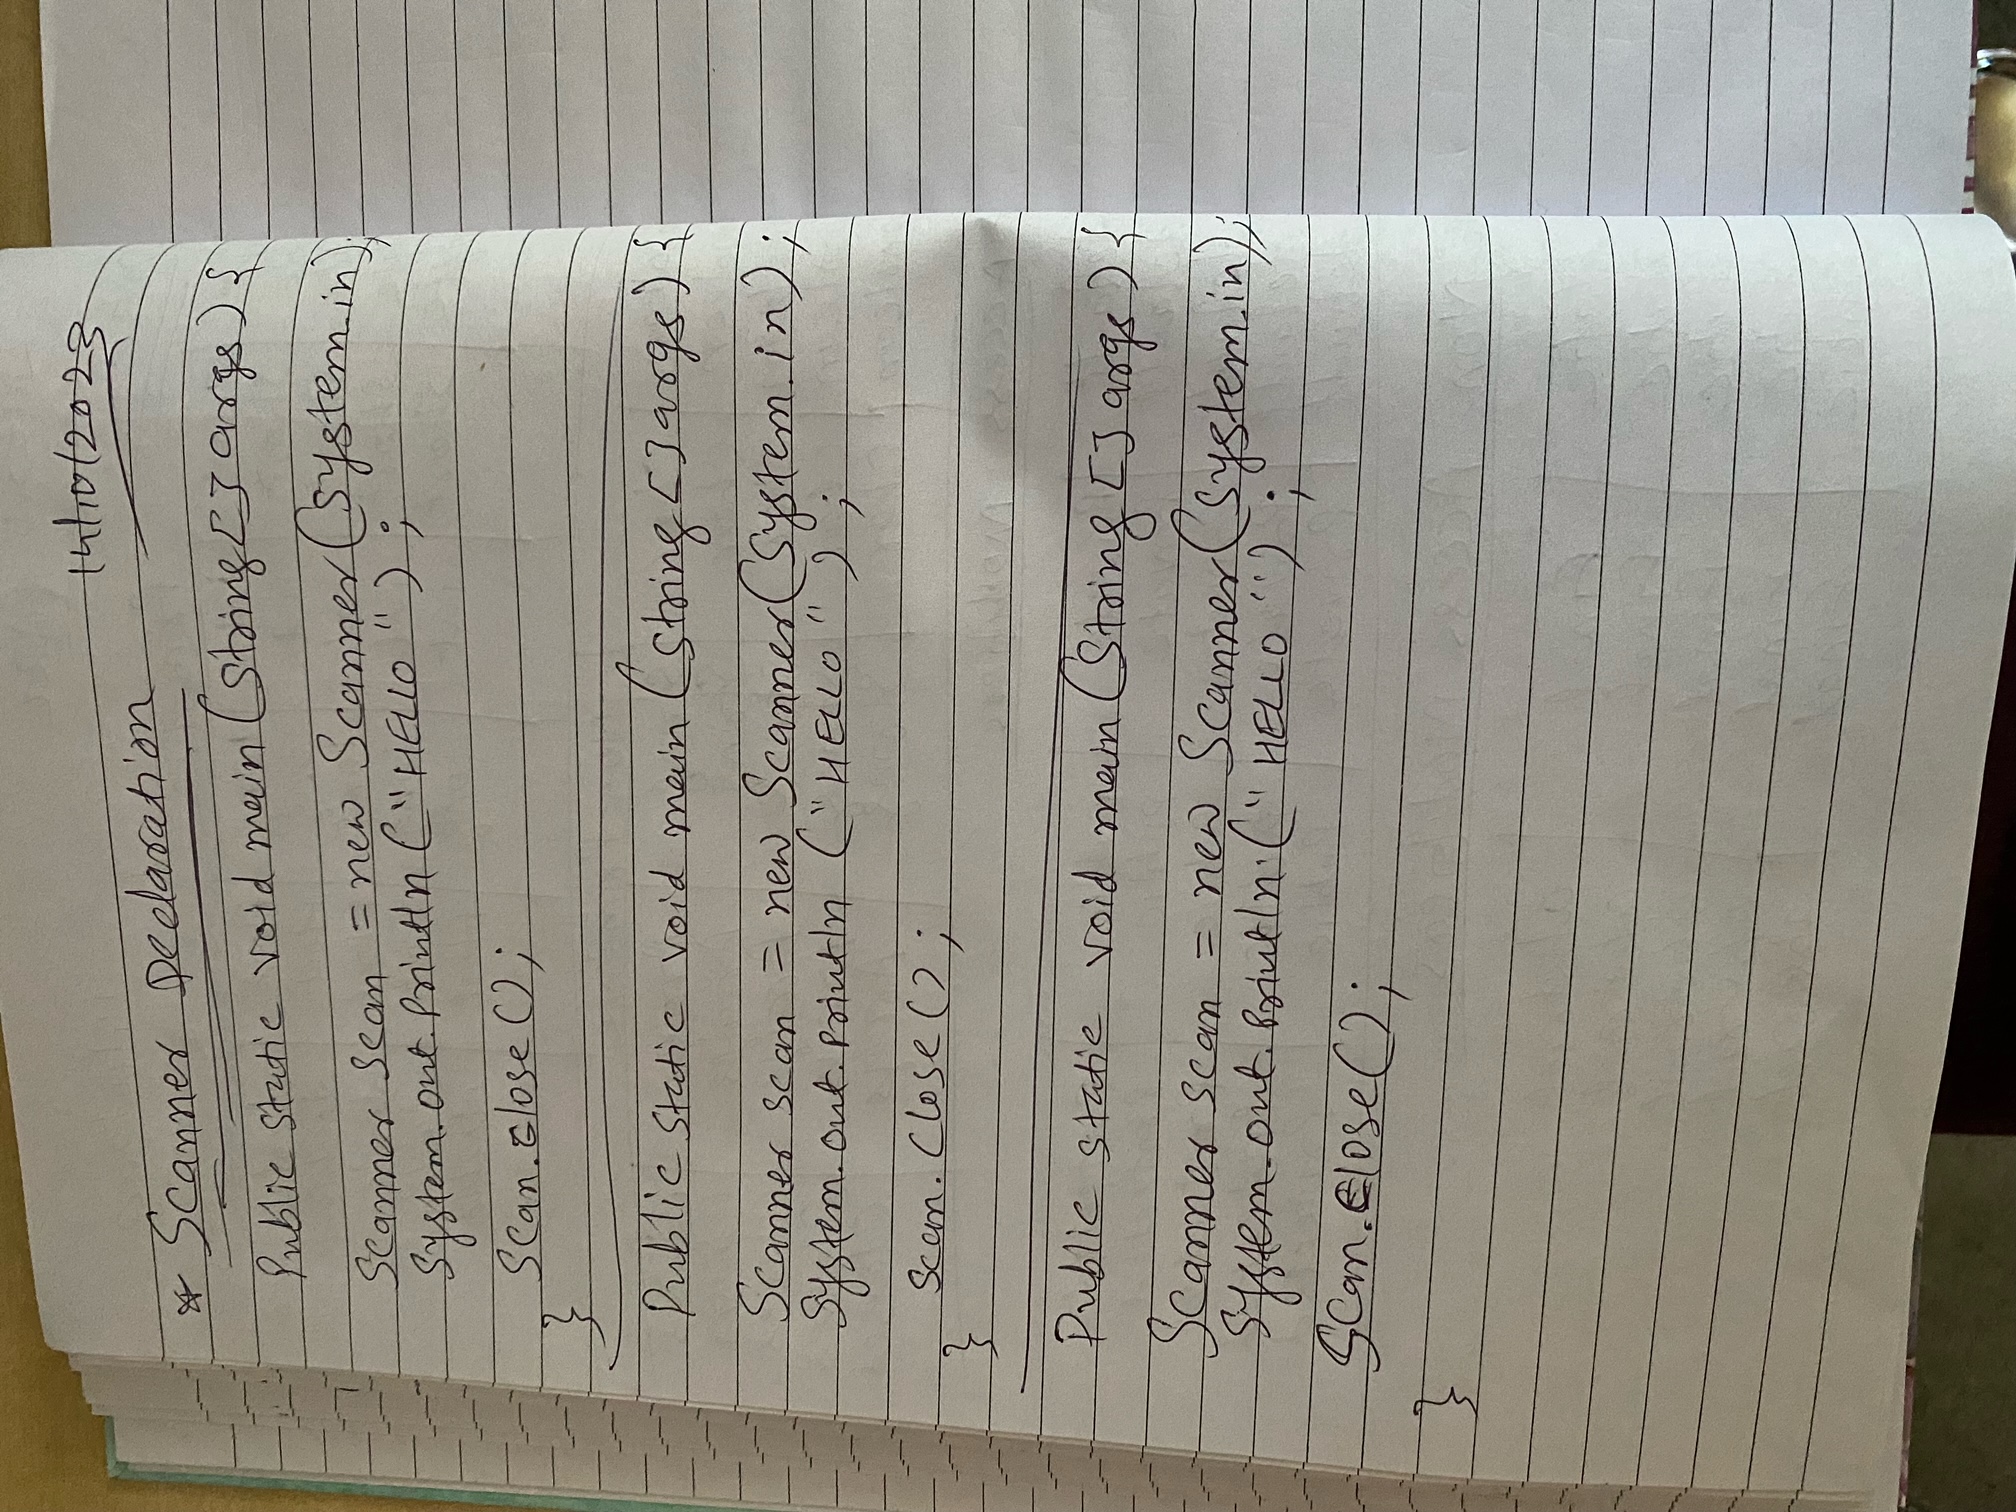 14/10/2023
* Scanner Declaration
Public static void main (String [] args) {
Scanner scan = new Scanner (System.in);
System.out.println ("HELLO");
Scan.close();
}
Public static void main (String [] args) {
Scanner scan = new Scanner (System.in);
System.out.println ("HELLO");
scan.close();
}
Public static void main (String [] args) {
Scanner scan = new Scanner (System.in);
System.out.println. ("HELLO");
Scan.close();
}